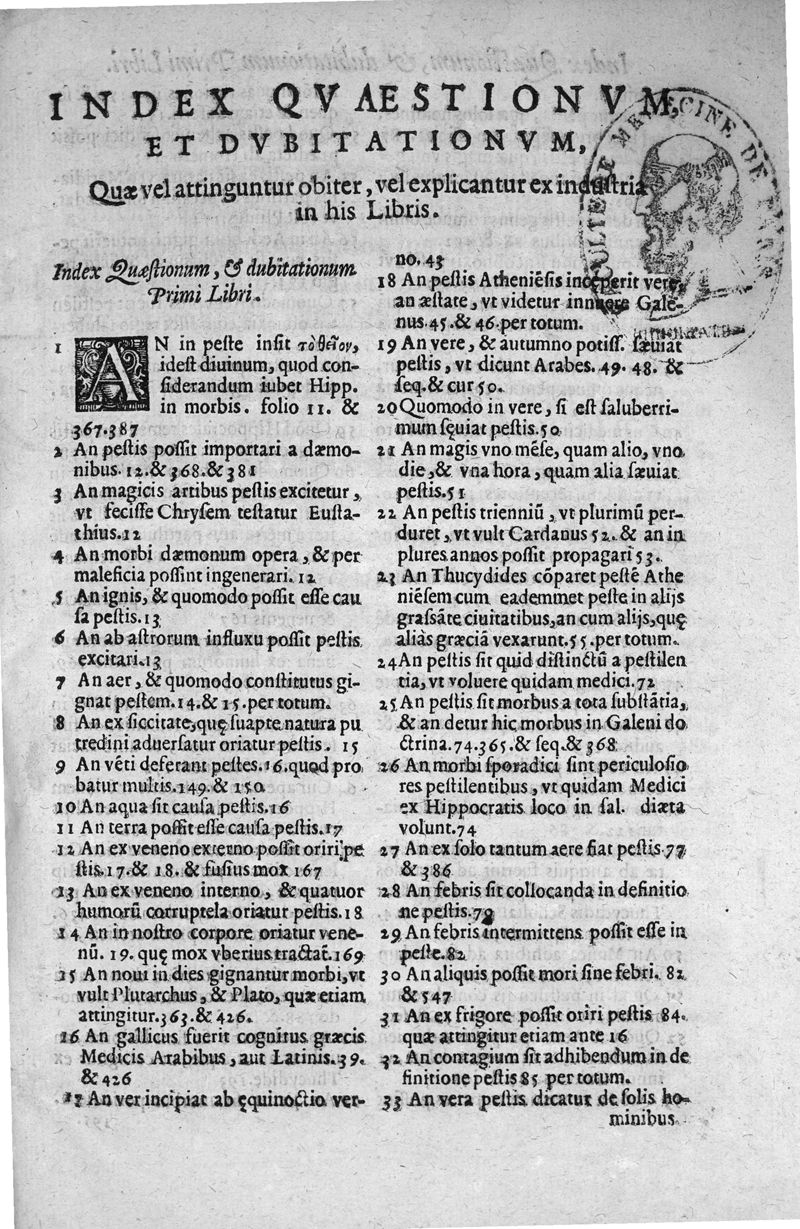 INDEX QVAESTIONVM,
ET DVBITATIONVM,
Quæ vel attinguntur obiter, vel explicantur ex industria
in his Libris.
Index Quæſtionum, & dubitationum
Primi Libri.
1 AN in peſte inſit τὸ θεῖον,
ideſt diuinum, quod con-
ſiderandum iubet Hipp.
in morbis. folio 11. &
367.387
2 An peſtis poſſit importari a dæmo-
nibus. 12.&368.&381
3 An magicis artibus peſtis excitetur,
vt feciſſe Chryſem teſtatur Euſta-
thius.12
4 An morbi dæmonum opera, & per
maleficia poſſint ingenerari. 12
5 An ignis, & quomodo poſſit eſſe cau
ſa peſtis.13
6 An ab aſtrorum influxu poſſit peſtis
excitari.13
7 An aer, & quomodo conſtitutus gi-
gnat peſtem.14.& 15.per totum.
8 An ex ſiccitate,quę ſuapte natura pu
tredini aduerſatur oriatur peſtis. 15
9 An vēti deferant peſtes.16.quod pro
batur multis.149.& 150
10 An aqua ſit cauſa peſtis.16
11 An terra poſſit eſſe cauſa peſtis.17
12 An ex veneno externo poſſit oriri pe
ſtis.17.& 18. & fuſius mox 167
13 An ex veneno interno, & quatuor
humorū corruptela oriatur peſtis.18
14 An in noſtro corpore oriatur vene-
nū. 19. quę mox vberius tractat̄.169
15 An noui in dies gignantur morbi,vt
vult Plutarchus, & Plato, quæ etiam
attingitur.363.& 426.
16 An gallicus fuerit cognitus græcis
Medicis Arabibus, aut Latinis.39.
& 426
17 An ver incipiat ab ęquinoctio ver-
no. 43
18 An peſtis Atheniēſis inceperit vere,
an æſtate, vt videtur innuere Gale-
nus.45.& 46.per totum.
19 An vere, & autumno potiſſ. ſæuiat
peſtis, vt dicunt Arabes. 49. 48. &
ſeq.& cur 50.
20 Quomodo in vere, ſi eſt ſaluberri-
mum ſęuiat peſtis.50
21 An magis vno mēſe, quam alio, vno
die,& vna hora, quam alia ſæuiat
peſtis.51
22 An peſtis trienniū, vt plurimū per-
duret, vt vult Cardanus 52.& an in
plures annos poſſit propagari 53.
23 An Thucydides cōparet peſtē Athe
niēſem cum eademmet peſte in alijs
graſsāte ciuitatibus,an cum alijs,quę
aliàs græciā vexarunt.55.per totum.
24 An peſtis ſit quid diſtinctū a peſtilen
tia, vt voluere quidam medici.72
25 An peſtis ſit morbus a tota ſubſtātia,
& an detur hic morbus in Galeni do
ctrina.74.365.& ſeq.& 368
26 An morbi ſporadici ſint periculoſio
res peſtilentibus, vt quidam Medici
ex Hippocratis loco in ſal. diæta
volunt.74
27 An ex ſolo tantum aere fiat peſtis.77
& 386
28 An febris ſit collocanda in definitio
ne peſtis.79
29 An febris intermittens poſſit eſſe in
peſte.82
30 An aliquis poſſit mori ſine febri. 82
& 547
31 An ex frigore poſſit oriri peſtis 84.
quæ attingitur etiam ante 16
32 An contagium ſit adhibendum in de
finitione peſtis 85 per totum.
33 An vera peſtis dicatur de ſolis ho-
minibus